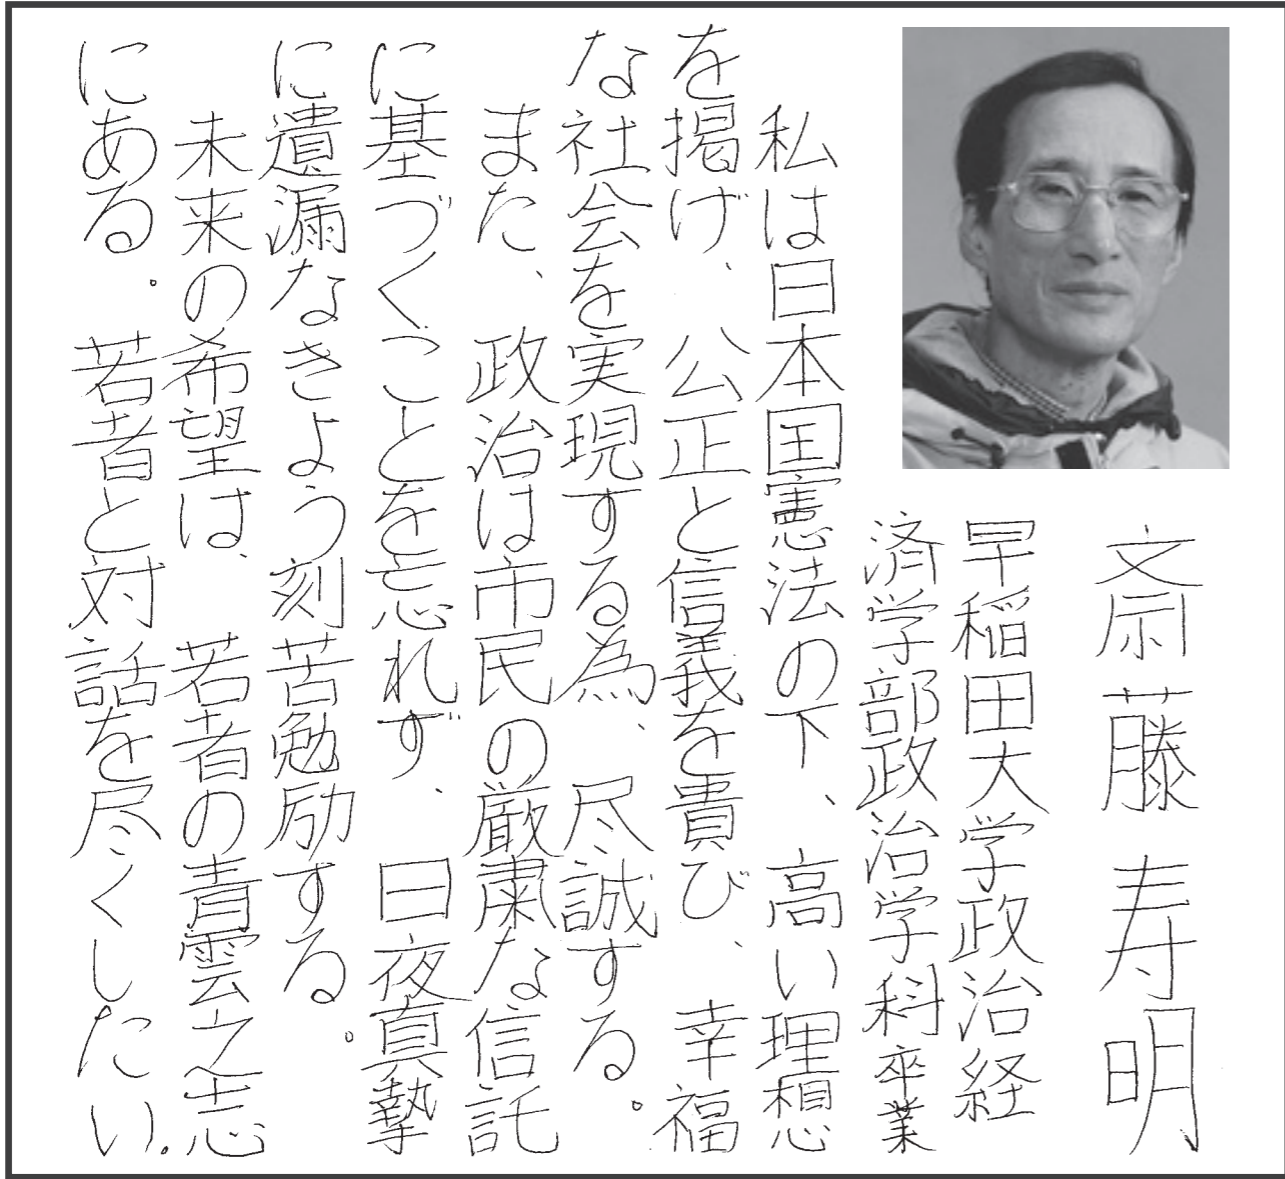 斎藤寿明
早稲田大学政治経
済学部政治学科卒業
私は日本国憲法の下、高い理想
を掲げ、公正と信義を貴び、幸福
な社会を実現する為、尽誠する。
また、政治は市民の厳粛な信託
に基づくことを忘れず、日夜真摯
に遺漏なきよう刻苦勉励する。
未来の希望は、若者の青雲之志
にある。若者と対話を尽くしたい。